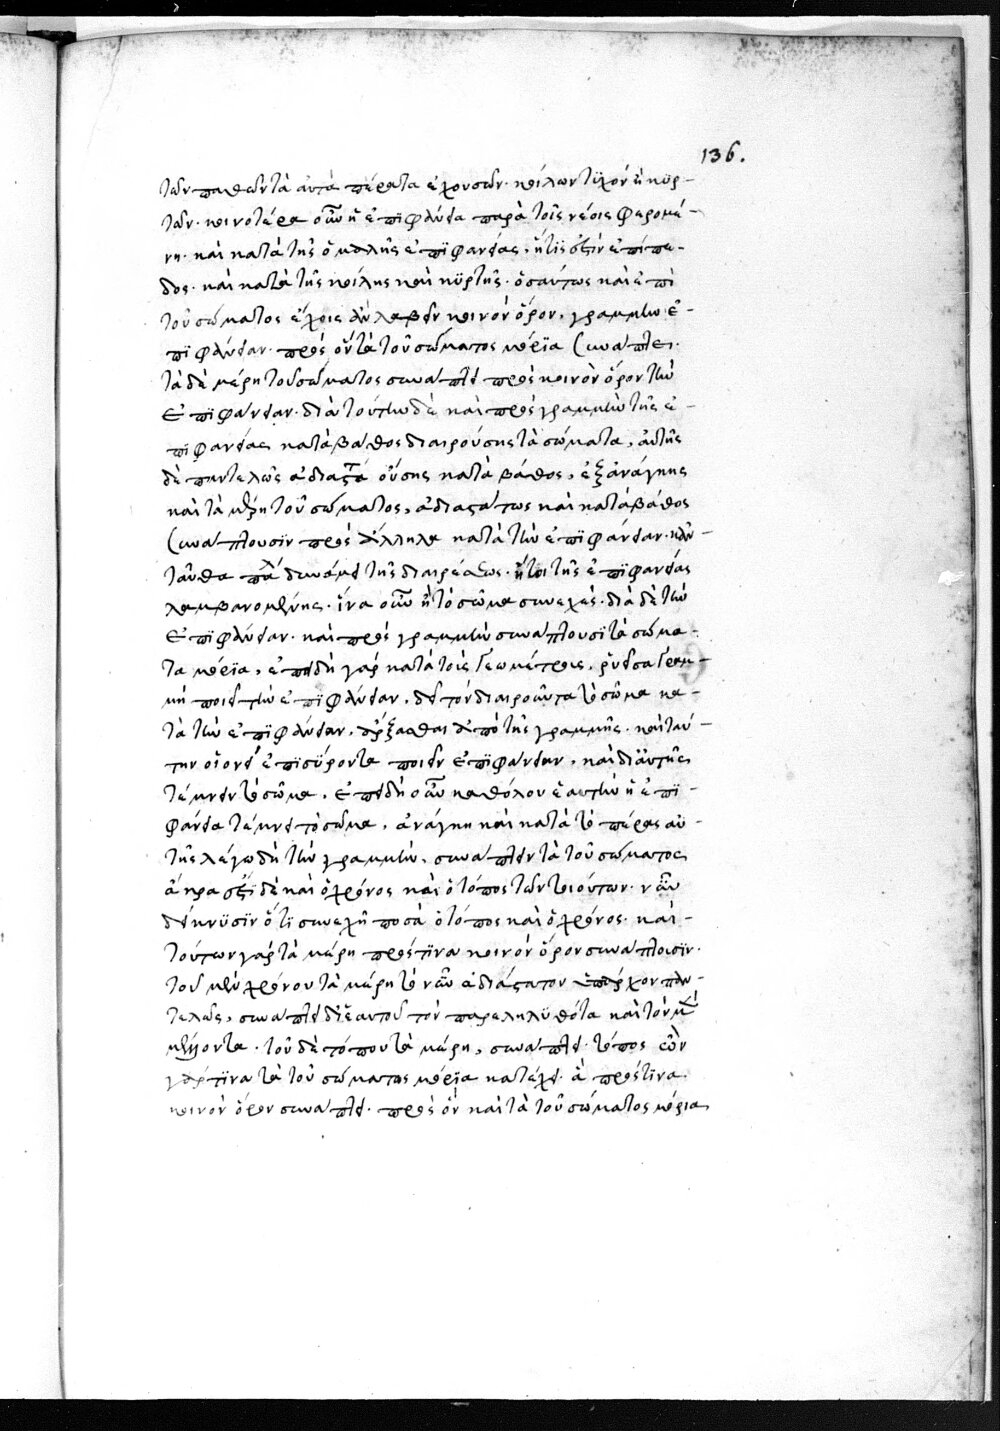 136.
τῶν παθῶν τὰ αὐτὰ πέρατα ἐχουσῶν· κοίλων τυχὸν ἢ κυρ-
τῶν· κοινοτέρα οὖν ἡ ἐπιφάνεια παρὰ τοῖς νέοις φερομέ-
νη· καὶ κατὰ τῆς ὁμαλῆς ἐπιφανείας, ἥτις ἐστὶν ἐπίπε-
δος· καὶ κατὰ τῆς κοίλης καὶ κυρτῆς· ὁσαύτως καὶ ἐπὶ
τοῦ σώματος ἔχοις ἂν λαβεῖν κοινὸν ὅρον, γραμμὴν ἐ-
πιφάνειαν· πρὸς οὓς τὰ τοῦ σώματος μόρια συνάπτει·
τὰ δὲ μέρη τοῦ σώματος συνάπτει πρὸς κοινὸν ὅρον τὴν
ἐπιφάνειαν· διὰ τούτων δὲ καὶ πρὸς γραμμὴν τῆς ἐ-
πιφανείας κατὰ βάθος διαιρούσης τὰ σώματα, αὐτῆς
δὲ παντελῶς ἀδιαστά οὔσης κατὰ βάθος, ἐξ ἀνάγκης
καὶ τὰ μέρη τοῦ σώματος, ἀδιαστάτως καὶ κατὰ βάθος
συνάπτουσιν πρὸς ἄλληλα κατὰ τὴν ἐπιφάνειαν· κἀν-
ταῦθα δυνάμει τῆς διαιρέσεως· ἤτοι τῆς ἐπιφανείας
λαμβανομένης· ἵνα οὖν ᾖ τὸ σῶμα συνεχές· διὰ δὲ τὴν
ἐπιφάνειαν· καὶ πρὸς γραμμὴν συνάπτουσι τὰ σώμα-
τα μόρια, ἐπειδὴ γὰρ κατὰ τοὺς γεωμέτρας, ῥυεῖσα γραμ-
μὴ ποιεῖ τὴν ἐπιφάνειαν, δεῖ τὸν διαιροῦντα τὸ σῶμα κα-
τὰ τὴν ἐπιφάνειαν, ἄρξασθαι ἀπὸ τῆς γραμμῆς· καὶ ταύ-
την οἱονεὶ ἐπισύροντα ποιεῖν ἐπιφάνειαν, καὶ δι' αὐτῆς
τέμνειν τὸ σῶμα, ἐπειδὴ οὖν καθόλου ἑαυτὴν ἡ ἐπι-
φάνεια τέμνει τὸ σῶμα, ἀνάγκη καὶ κατὰ τὸ πέρας αὐ-
τῆς λέγω δὴ τὴν γραμμὴν, συνάπτειν τὰ τοῦ σώματος
ἄκρα ἔστι δὲ καὶ ὁ χρόνος καὶ ὁ τόπος τῶν τοιούτων· νῦν
δείκνυσιν ὅτι συνεχῆ ποσὰ ὁ τόπος καὶ ὁ χρόνος· καὶ
τούτων γὰρ τὰ μέρη πρός τινα κοινὸν ὅρον συνάπτουσιν·
τοῦ μὲν χρόνου τὰ μέρη τὸ νῦν ἀδιάστατον ὑπάρχον παν-
τελῶς, συνάπτει δι' ἑαυτοῦ τὸν παρεληλυθότα καὶ τὸν
μέλλοντα· τοῦ δὲ τόπου τὰ μέρη, συνάπτει· τόπος
γάρ τινα τὰ τοῦ σώματος μόρια κατέχει· ἃ πρός τινα
κοινὸν ὅρον συνάπτει· πρὸς ὃν καὶ τὰ τοῦ σώματος μόρια